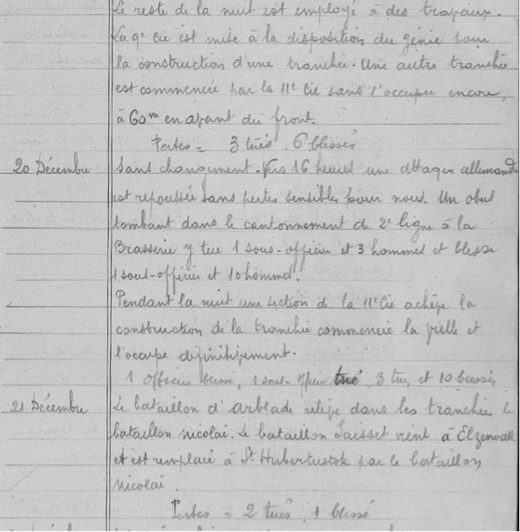 Le reste de la nuit est employé à des travaux.
La 9e Cie est mise à la disposition du génie pour
la construction d'une tranchée. Une autre tranchée
est commencée par la 11e Cie sans l'occuper encore,
à 60m en avant du front.
Pertes = 3 tués, 6 blessés
20 Décembre
Sans changement. Vers 16 heures une attaque allemande
est repoussée sans pertes sensibles pour nous. Un obus
tombant dans le cantonnement de 2e ligne à la
Brasserie y tue 1 sous-officier et 3 hommes et blesse
1 sous-officier et 10 hommes.
Pendant la nuit une section de la 11e Cie achève la
construction de la tranchée commencée la veille et
l'occupe définitivement.
1 officier blessé, 1 sous-officier tué, 3 tués et 10 blessés
21 Décembre
Le bataillon d'Arbladi relève dans les tranchées le
bataillon Nicolai. Le bataillon Saisset vient à Elzenwall
et est remplacé à St Hubertustok par le bataillon
Nicolai.
Pertes = 2 tués, 1 blessé